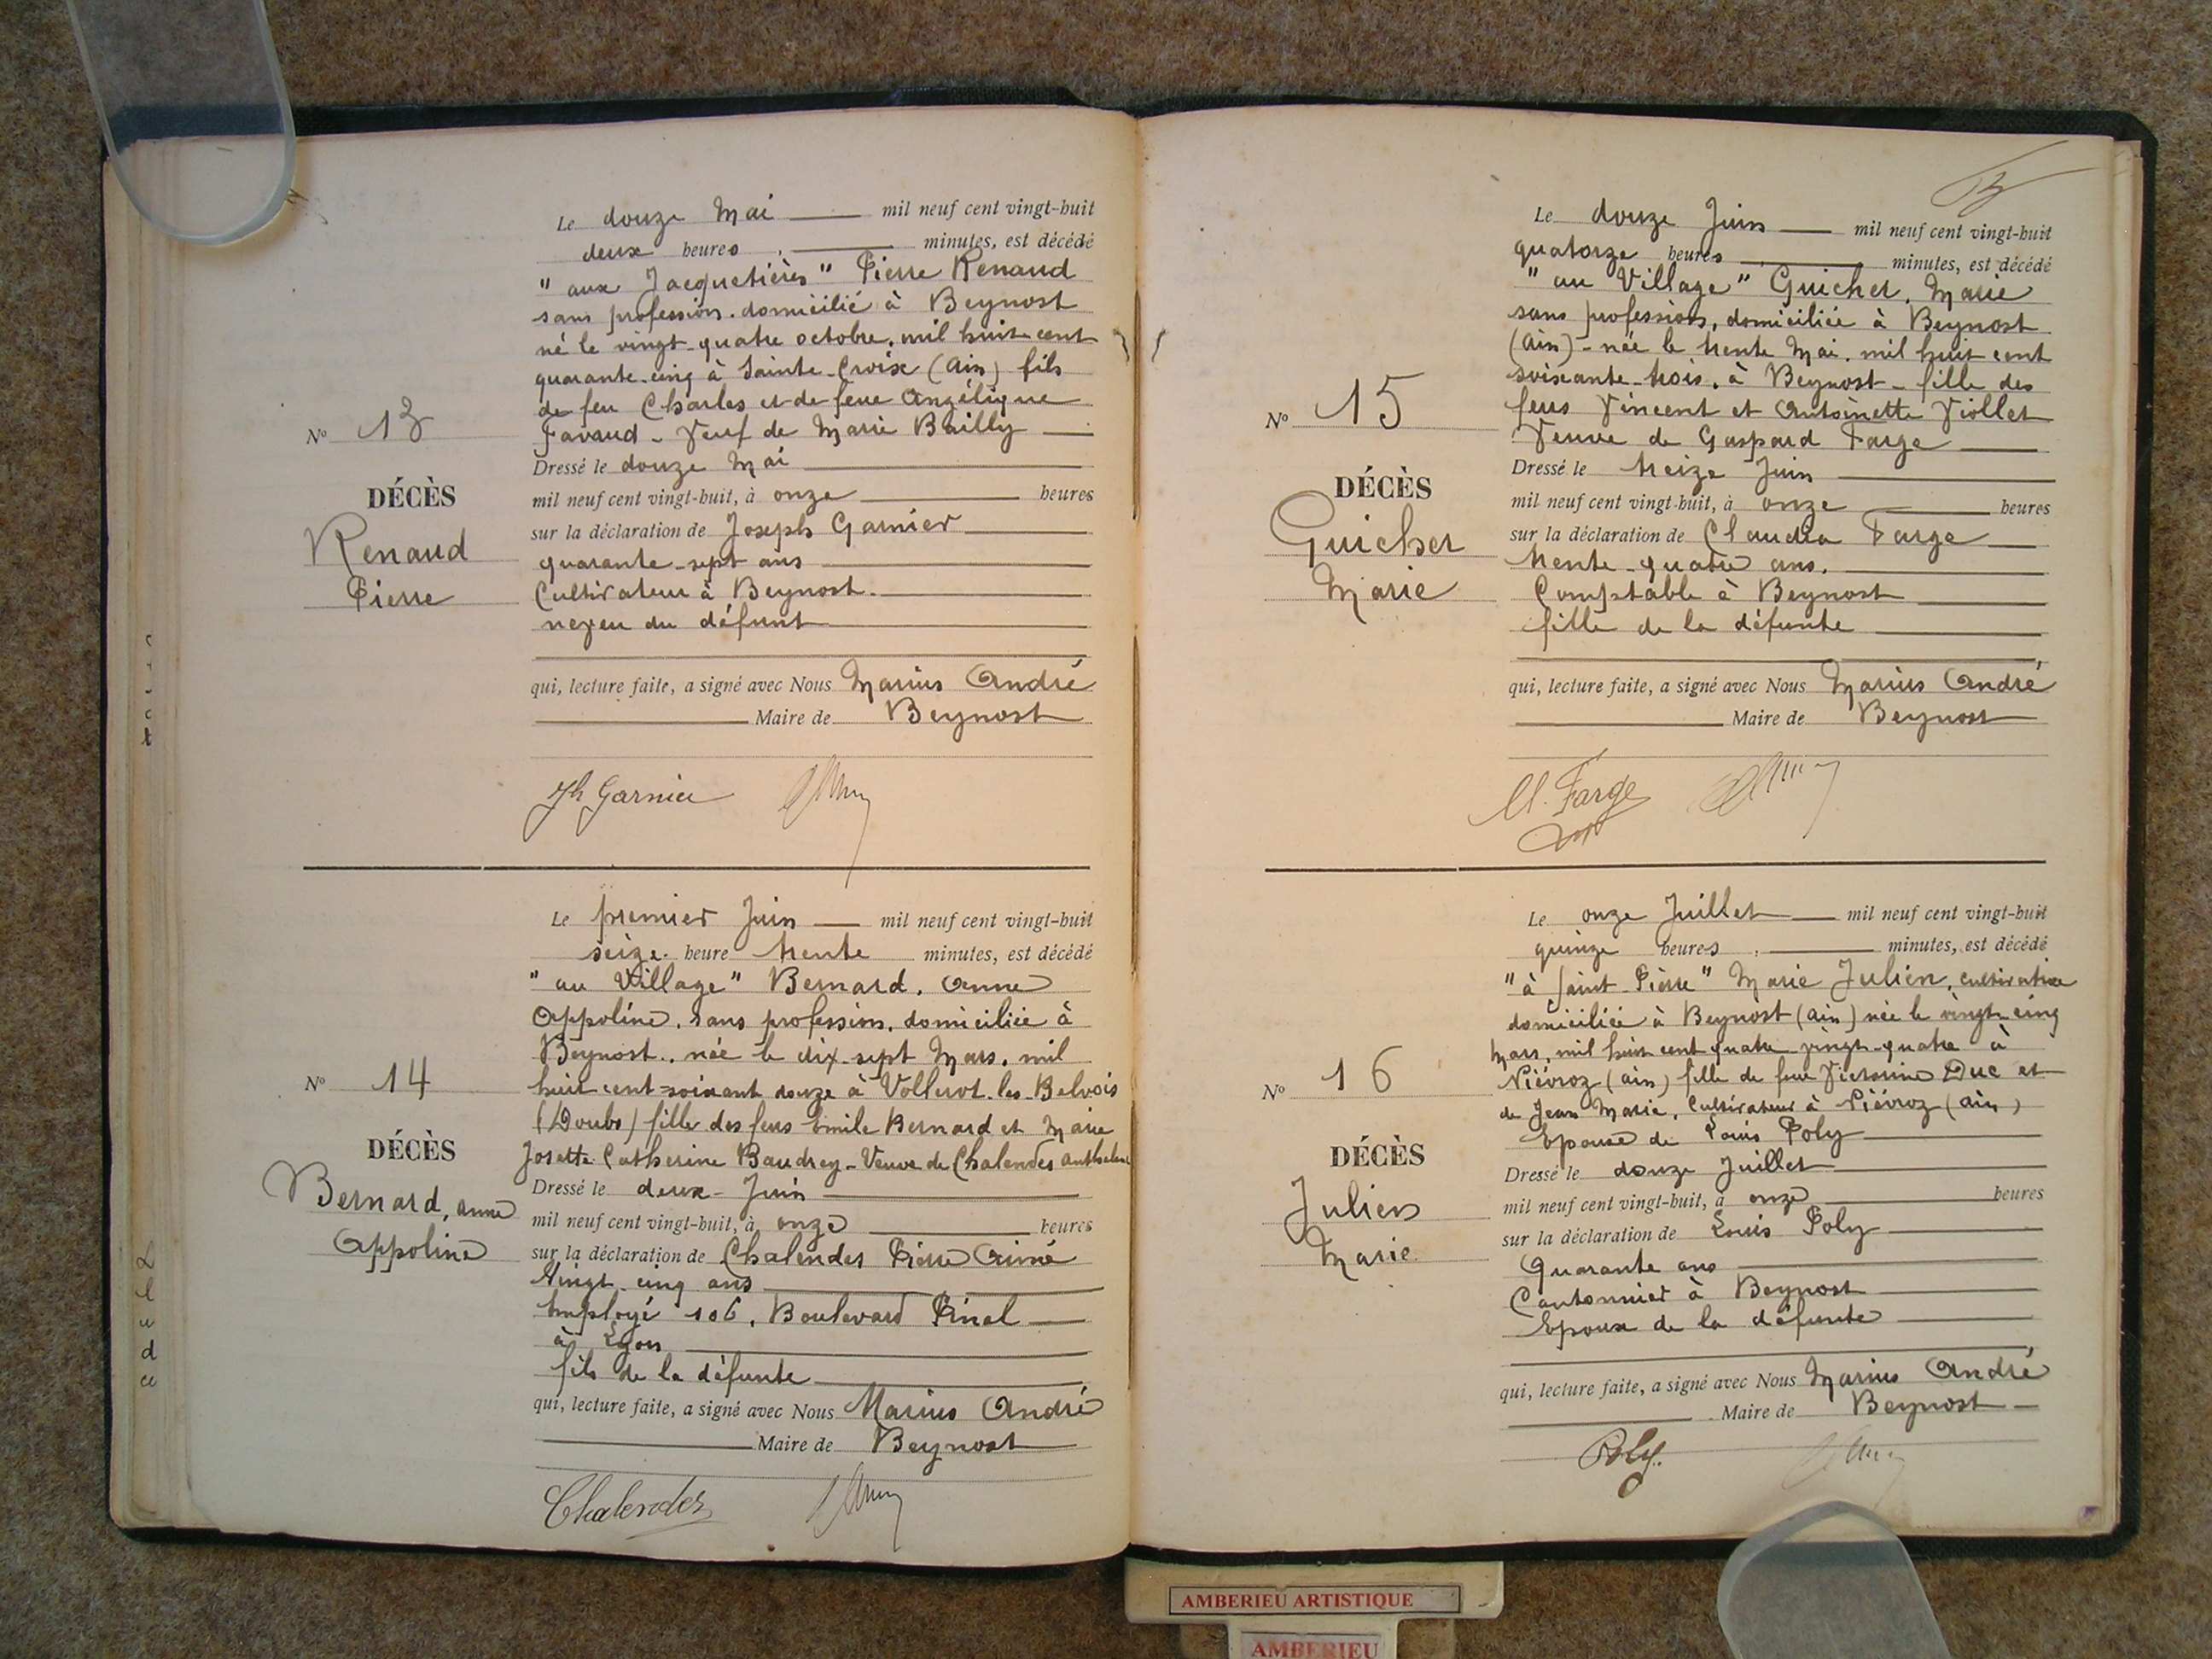 Le douze Mai mil neuf cent vingt-huit
deux heures minutes, est décédé
"aux Jacquetières" Pierre Renaud
sans profession. domicilié à Beynost
né le vingt-quatre octobre, mil huit cent
quarante-cinq à Sainte-Croix (Ain) fils
de feu Charles et de feue Angélique
Favaud - Veuf de Marie Bailly
Nº 13
Dressé le douze Mai
DÉCÈS
mil neuf cent vingt-huit, à onze heures
Renaud
Pierre
sur la déclaration de Joseph Garnier
quarante-sept ans
Cultivateur à Beynost.
neveu du défunt
qui, lecture faite, a signé avec Nous Marius André
Maire de Beynost
Jh Garnier
Le premier Juin mil neuf cent vingt-huit
seize heure trente minutes, est décédé
"au Village" Bernard, Anne
Appoline, sans profession, domiciliée à
Beynost, née le dix-sept Mars, mil
Nº 14
huit cent-soixant douze à les-Belvois
(Doubs) fille des feus Emile Bernard et Marie
DÉCÈS
Josette Catherine Baudrey - Veuve de Chalendes
Bernard, Anne
Appoline
Dressé le deux Juin
mil neuf cent vingt-huit, à onze heures
sur la déclaration de Chalendes Pierre Aimé
Vingt-cinq ans
Employé 106, Boulevard Pinel
à Lyon
fils de la défunte
qui, lecture faite, a signé avec Nous Marius André
Maire de Beynost
Chalendes
Le douze Juin mil neuf cent vingt-huit
quatorze heures minutes, est décédé
"au Village" Guicher, Marie
sans profession, domiciliée à Beynost
(Ain) - née le trente Mai, mil huit cent
soixante-trois, à Beynost - fille des
feus Vincent et Antoinette Viollet
Veuve de Gaspard Farge
Nº 15
Dressé le treize Juin
DÉCÈS
mil neuf cent vingt-huit, à onze heures
Guicher
Marie
sur la déclaration de Claudia Farge
trente-quatre ans,
Comptable à Beynost
fille de la défunte
qui, lecture faite, a signé avec Nous Marius André
Maire de Beynost
Cl. Farge
Le onze Juillet mil neuf cent vingt-huit
quinze heures minutes, est décédé
"à Saint-Pierre" Marie Julien, cultivatrice
domiciliée à Beynost (Ain) née le vingt-cinq
Mars, mil huit cent quatre-vingt-quatre à
Niévroz (Ain) fille de feue Victorine Duc et
de Jean Marie, Cultivateur à Niévroz (Ain)
Epouse de Louis Poly
Nº 16
DÉCÈS
Dressé le douze Juillet
mil neuf cent vingt-huit, à onze heures
Julien
Marie
sur la déclaration de Louis Poly
Quarante ans
Cantonnier à Beynost
Epoux de la défunte
qui, lecture faite, a signé avec Nous Marius André
Maire de Beynost
Poly.
AMBERIEU ARTISTIQUE
AMBERIEU